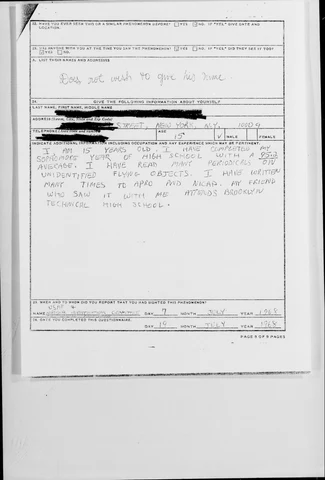 22. HAVE YOU EVER SEEN THIS OR A SIMILAR PHENOMENON BEFORE? YES NO. IF "YES" GIVE DATE AND
LOCATION.
23. WAS ANYONE WITH YOU AT THE TIME YOU SAW THE PHENOMENON? YES NO. IF "YES" DID THEY SEE IT TOO?
YES NO
A. LIST THEIR NAMES AND ADDRESSES
Does not wish to give his name.
24. GIVE THE FOLLOWING INFORMATION ABOUT YOURSELF
LAST NAME, FIRST NAME, MIDDLE NAME
ADDRESS (Street, City, State and Zip Code)
STREET, NEW YORK, N.Y.
TELEPHONE AGE
15 MALE FEMALE
INDICATE ADDITIONAL INFORMATION INCLUDING OCCUPATION AND ANY EXPERIENCE WHICH MAY BE PERTINENT.
I AM 15 YEARS OLD. I HAVE COMPLETED MY
SOPHOMORE YEAR OF HIGH SCHOOL WITH A
AVERAGE. I HAVE READ MANY PERIODICALS ON
UNIDENTIFIED FLYING OBJECTS. I HAVE WRITTEN
MANY TIMES TO APRO AND NICAP. MY FRIEND
WHO SAW IT WITH ME ATTENDS BROOKLYN
TECHNICAL HIGH SCHOOL.
25. WHEN AND TO WHOM DID YOU REPORT THAT YOU HAD SIGHTED THIS PHENOMENON?
USAF
NAME DAY 7 MONTH JULY YEAR 1968
26. DATE YOU COMPLETED THIS QUESTIONNAIRE.
DAY MONTH JULY YEAR 1968
PAGE 9 OF 9 PAGES